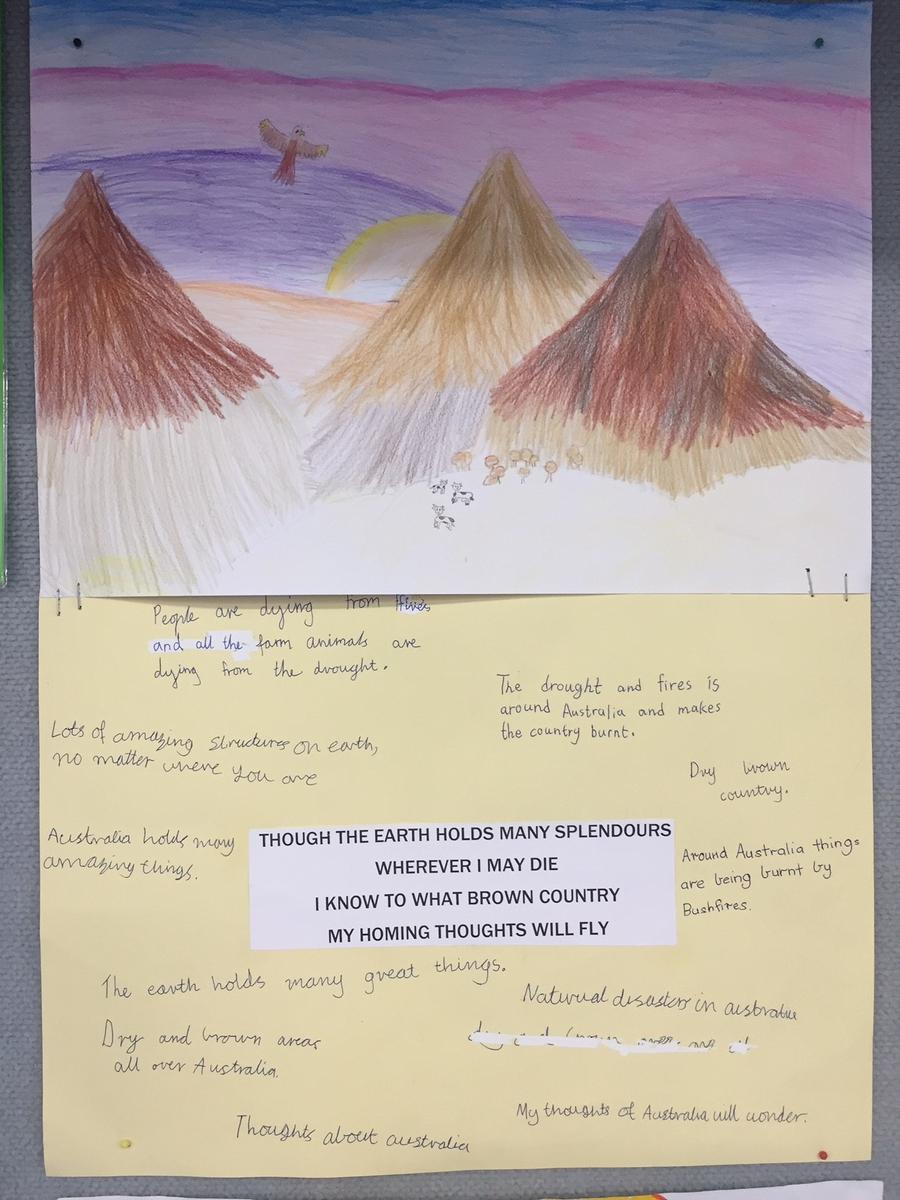 People are dying from fires
and all the farm animals are
dying from the drought.
The drought and fires is
around Australia and makes
the country burnt.
Lots of amazing structures on earth,
no matter where you are
Dry brown
country.
Australia holds many
amazing things.
THOUGH THE EARTH HOLDS MANY SPLENDOURS
WHEREVER I MAY DIE
I KNOW TO WHAT BROWN COUNTRY
MY HOMING THOUGHTS WILL FLY
Around Australia things
are being burnt by
Bushfires.
The earth holds many great things.
Dry and brown areas
all over Australia.
disasters in
My thoughts of Australia will wonder.
Thoughts about australia